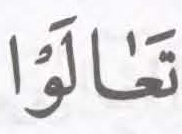 تَعٰالَوْا